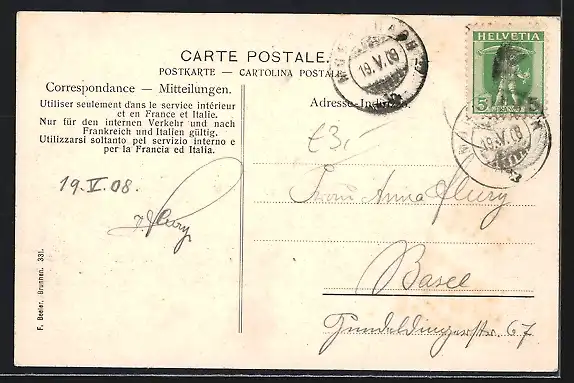 CARTE POSTALE.
POSTKARTE — CARTOLINA POSTALE
Correspondance — Mitteilungen.
Utiliser seulement dans le service intérieur
et en France et Italie.
Nur für den internen Verkehr und nach
Frankreich und Italien gültig.
Utilizzarsi soltanto pel servizio interno e
per la Francia ed Italia.
19. V. 08.
J. Flury
F. Beeler, Brunnen. 331.
19.V.08
HELVETIA
5
19.V.08
Frau Anna Flury
Basel
Gundeldingerstr. 67